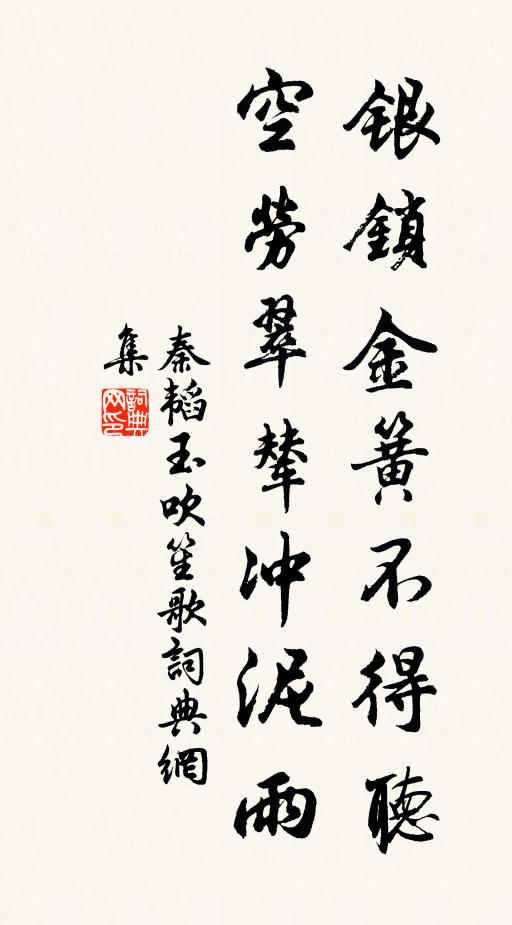 銀鎖金簧不得聽
空勞翠輦冲泥雨
秦韜玉吹笙歌詞典網
集
詞典
网印